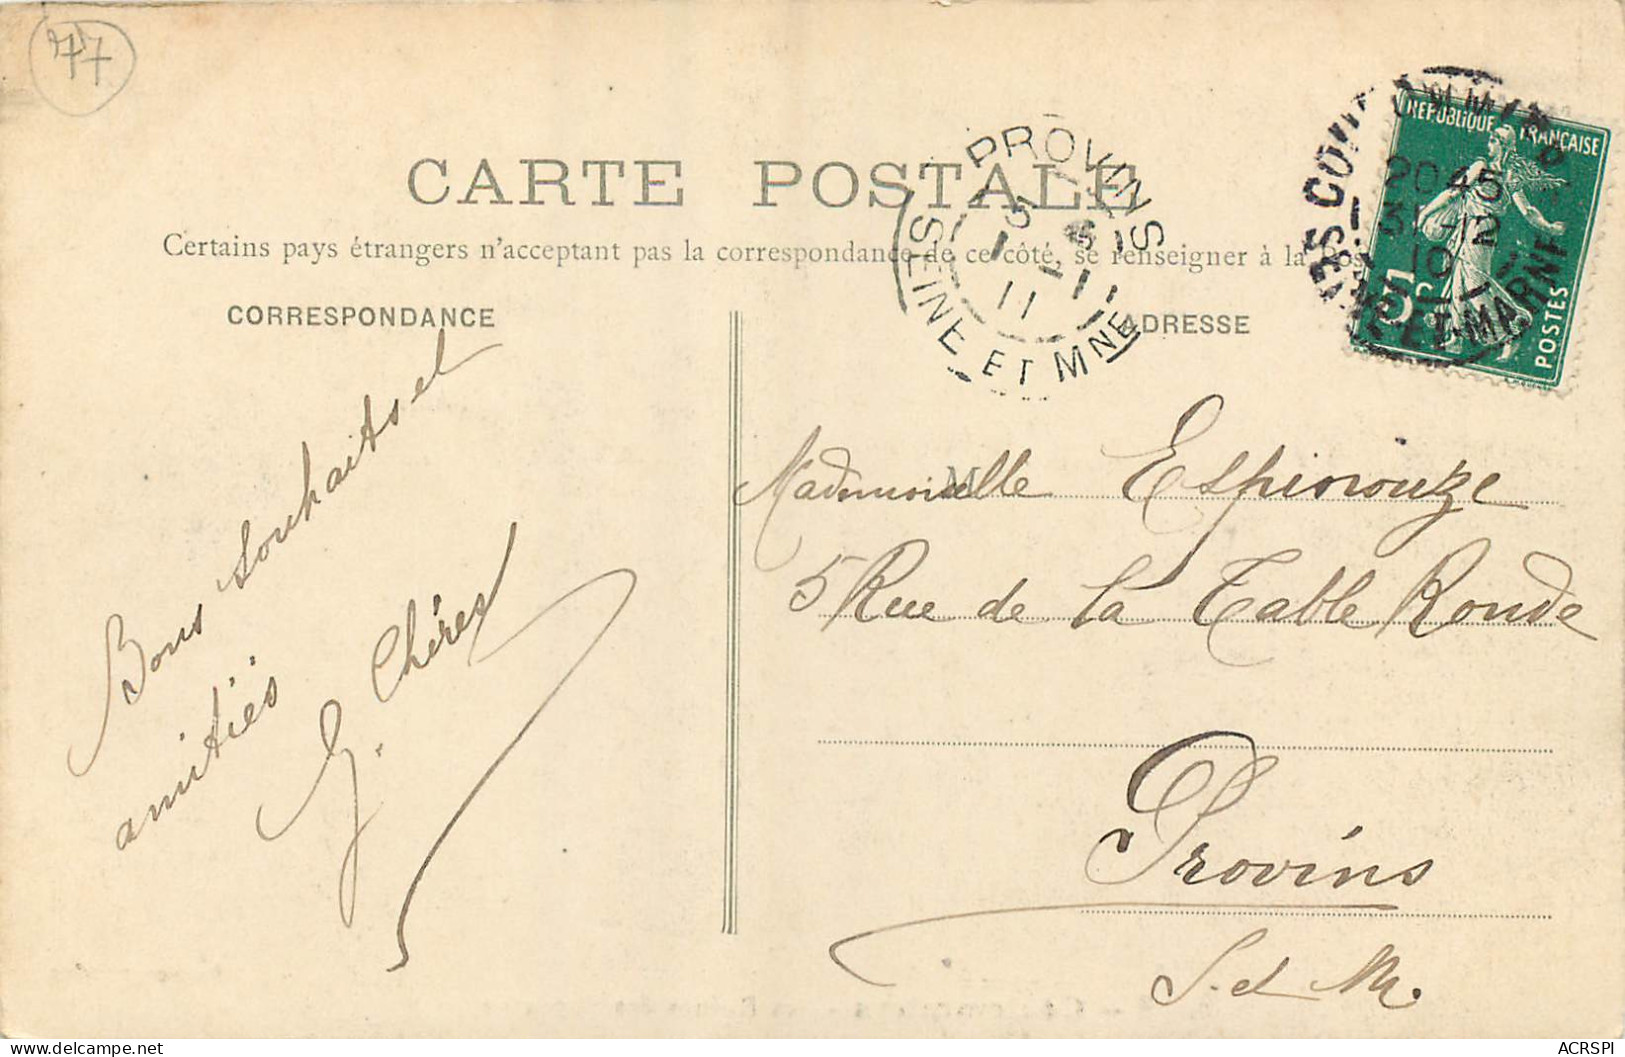 77
CARTE POSTALE
Certains pays étrangers n'acceptant pas la correspondance de ce côté, se renseigner à la
CORRESPONDANCE
ADRESSE
PROVINS
5
1-1
11
SEINE ET MNE
REPUBLIQUE FRANÇAISE
5c
POSTES
20 45
31-12
10
ET-MARNE
Bons souhaits et
amitiés
G. Chérex
M
Mademoiselle Espinouze
5 Rue de la Table Ronde
Provins
S. et M.
ACRSPI